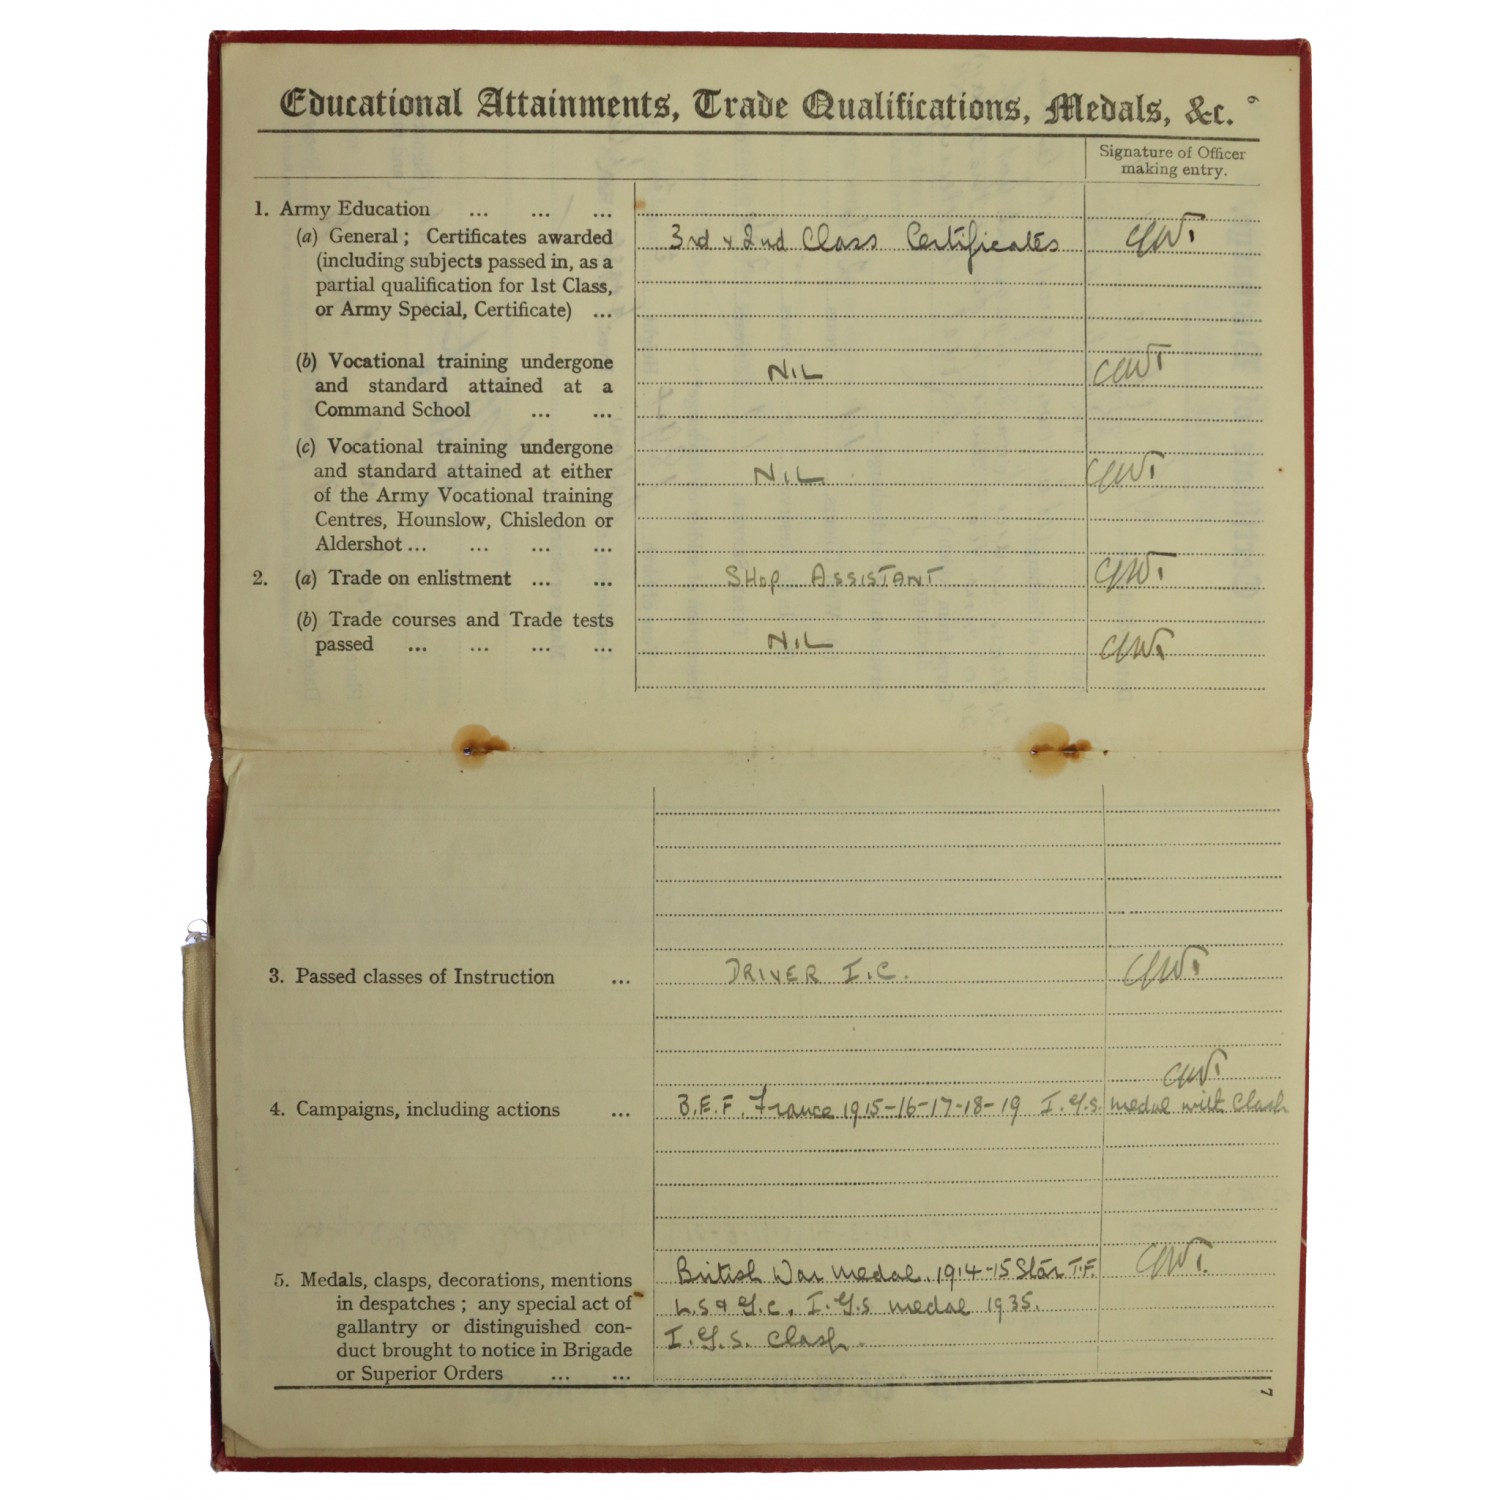 Educational Attainments, Trade Qualifications, Medals, &c.
6
Signature of Officer
making entry.
1. Army Education ... ... ...
(a) General; Certificates awarded 3rd & 2nd Class Certificates
(including subjects passed in, as a
partial qualification for 1st Class,
or Army Special, Certificate) ...
(b) Vocational training undergone NIL
and standard attained at a
Command School ... ...
(c) Vocational training undergone
and standard attained at either NIL
of the Army Vocational training
Centres, Hounslow, Chisledon or
Aldershot... ... ... ...
2. (a) Trade on enlistment ... ... SHOP ASSISTANT
(b) Trade courses and Trade tests
passed ... ... ... ... NIL
3. Passed classes of Instruction ... DRIVER I.C.
4. Campaigns, including actions ... B.E.F. France 1915-16-17-18-19 I.G.S. medal with Clasp
5. Medals, clasps, decorations, mentions British War medal. 1914-15 Star T.F.
in despatches; any special act of L.S & G.C. I.G.S medal 1935.
gallantry or distinguished con-
duct brought to notice in Brigade I.G.S. Clasp.
or Superior Orders ... ...
7